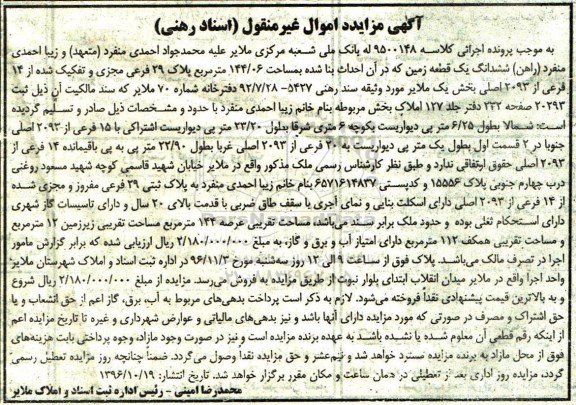 آگهی مزایده اموال غیرمنقول (اسناد رهنی)
به موجب پرونده اجرائی کلاسه ۹۵۰۰۱۴۸ له بانک ملی شعبه مرکزی ملایر علیه محمدجواد احمدی منفرد (متعهد) و زیبا احمدی
منفرد (راهن) ششدانگ یک قطعه زمین که در آن احداث بنا شده بمساحت ۱۴۴/۰۶ مترمربع پلاک ۲۹ فرعی مجزی و تفکیک شده از ۱۴
فرعی از ۲۰۹۳ اصلی بخش یک ملایر مورد وثیقه سند رهنی ۵۴۲۷- ۹۲/۷/۲۸ دفترخانه شماره ۷۰ ملایر که سند مالکیت آن ذیل ثبت
۲۰۲۹۳ صفحه ۲۳۲ دفتر جلد ۱۲۷ املاک بخش مربوطه بنام خانم زیبا احمدی منفرد با حدود و مشخصات ذیل صادر و تسلیم گردیده
است: شمالا بطول ۶/۲۵ متر پی دیواریست بکوچه ۶ متری شرقا بطول ۲۳/۲۰ متر پی دیواریست اشتراکی با ۱۵ فرعی از ۲۰۹۳ اصلی
جنوبا در ۲ قسمت اول بطول یک متر پی دیواریست به ۲۰ فرعی از ۲۰۹۳ اصلی غربا بطول ۲۳/۹۰ متر پی به پی باقیمانده ۱۴ فرعی از
۲۰۹۳ اصلی حقوق ارتفاقی ندارد و طبق نظر کارشناس رسمی ملک مذکور واقع در ملایر خیابان شهید قاسمی کوچه شهید مسعود روغنی
درب چهارم جنوبی پلاک ۱۵۵۵۶ و کدپستی ۶۵۷۱۶۱۴۸۳۷ بنام خانم زیبا احمدی منفرد به پلاک ثبتی ۲۹ فرعی مفروز و مجزی شده
از ۱۴ فرعی از ۲۰۹۳ اصلی دارای اسکلت بنایی و نمای آجری با سقف طاق ضربی با قدمت بالای ۲۰ سال و دارای تاسیسات گاز شهری
دارای استحکام ثعلی بوده و حدود ملک برابر سند می‌باشد، مساحت تقریبی عرصه ۱۴۴ مترمربع مساحت تقریبی زیرزمین ۱۲ مترمربع
و مساحت تقریبی همکف ۱۱۲ مترمربع دارای امتیاز آب و برق و گاز، به مبلغ ۲/۱۸۰/۰۰۰/۰۰۰ ریال ارزیابی شده که برابر گزارش مامور
اجرا در تصرف مالک می‌باشد. پلاک فوق از ساعت ۹ الی ۱۲ روز سه‌شنبه مورخ ۹۶/۱۱/۳ در اداره ثبت اسناد و املاک شهرستان ملایر
واحد اجرا واقع در ملایر میدان انقلاب ابتدای بلوار نبوت از طریق مزایده به فروش می‌رسد. مزایده از مبلغ ۲/۱۸۰/۰۰۰/۰۰۰ ریال شروع
و به بالاترین قیمت پیشنهادی نقداً فروخته می‌شود. لازم به ذکر است پرداخت بدهی‌های مربوط به آب، برق، گاز اعم از حق انشعاب و یا
حق اشتراک و مصرف در صورتی که مورد مزایده دارای آنها باشد و نیز بدهی‌های مالیاتی و عوارض شهرداری و غیره تا تاریخ مزایده اعم
از اینکه رقم قطعی آن معلوم شده یا نشده باشد به عهده برنده مزایده است و نیز در صورت وجود مازاد، وجوه پرداختی بابت هزینه‌های
فوق از محل مازاد به برنده مزایده مسترد خواهد شد و نیم‌عشر و حق مزایده نقدا وصول می‌گردد. ضمناً چنانچه روز مزایده تعطیل رسمی
گردد، مزایده روز اداری بعد از تعطیلی در همان ساعت و مکان مقرر برگزار خواهد شد. تاریخ انتشار: ۱۳۹۶/۱۰/۱۹
محمدرضا امینی - رئیس اداره ثبت اسناد و املاک ملایر